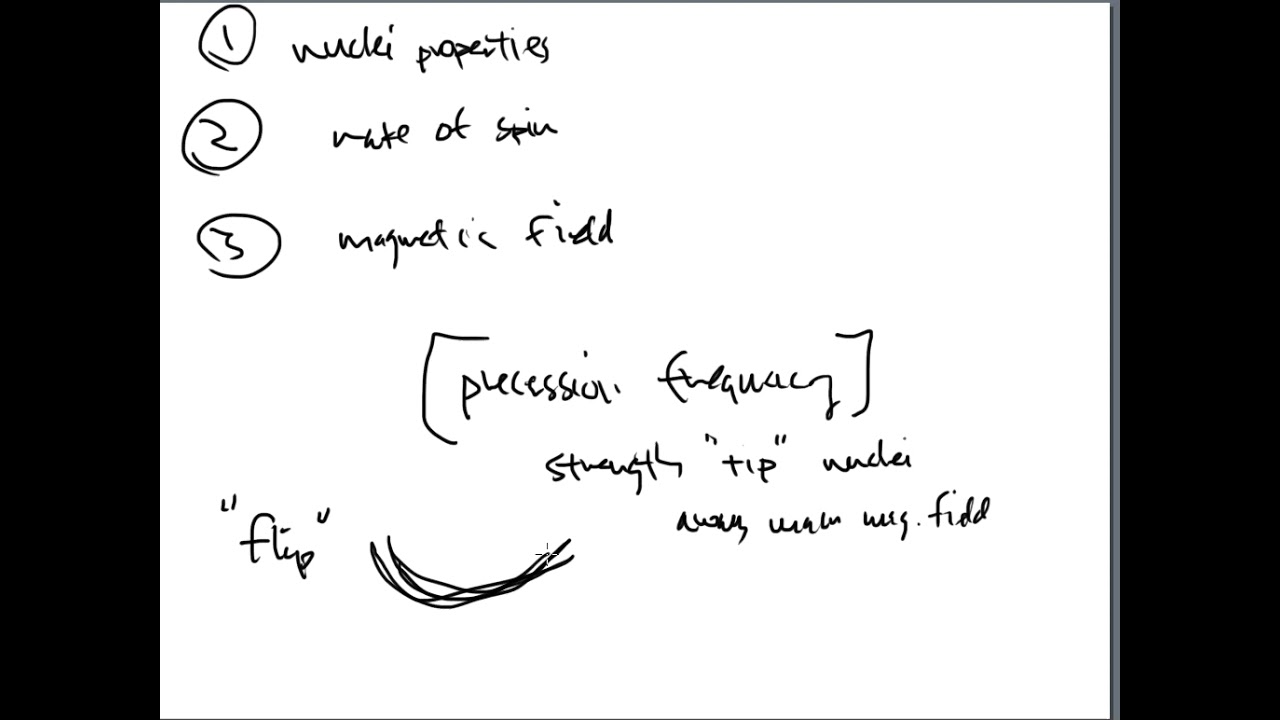 1 nuclei properties
2 rate of spin
3 magnetic field
[precession frequency]
strength "tip" nuclei
away main mag. field
"flip"